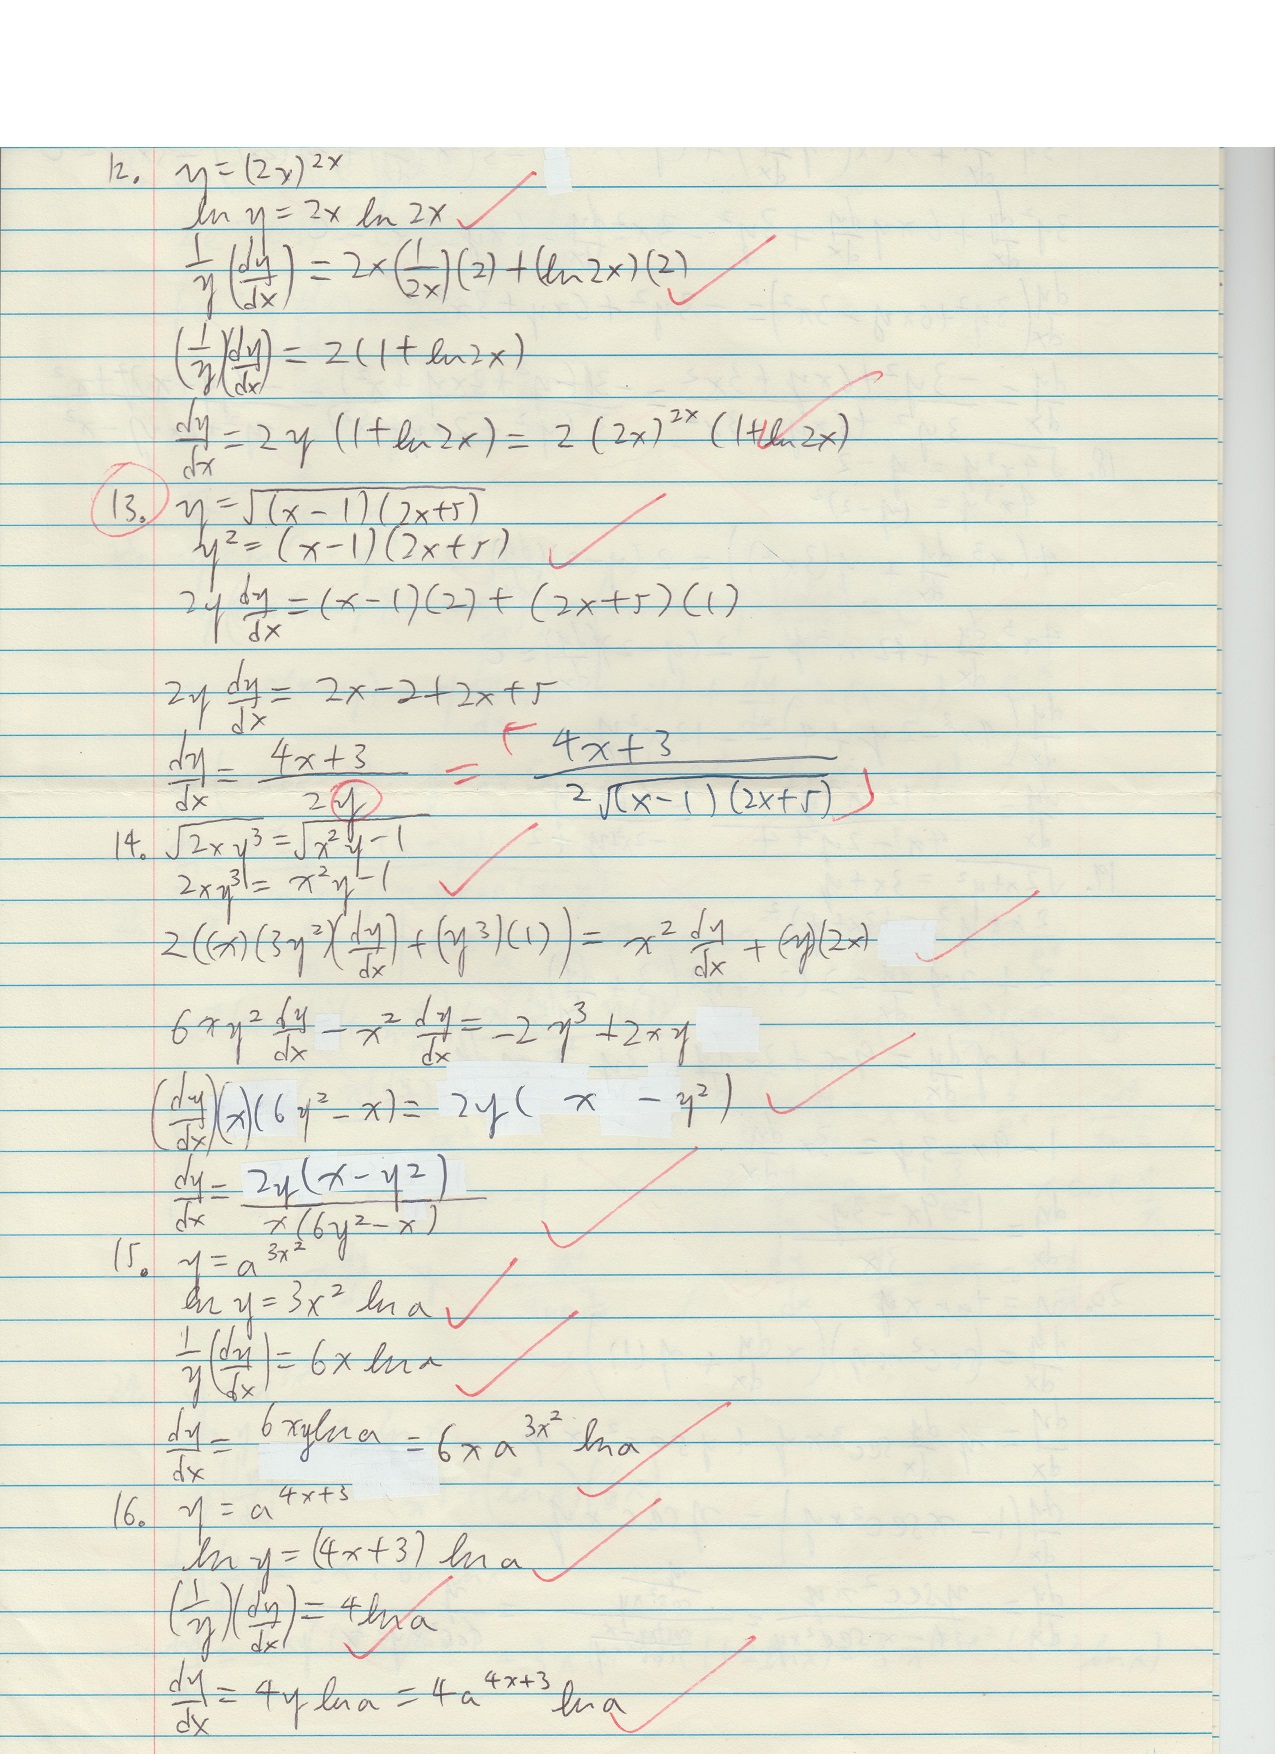 12. y = (2x)^{2x}
ln y = 2x ln 2x
\frac{1}{y} (\frac{dy}{dx}) = 2x (\frac{1}{2x}) (2) + (ln 2x) (2)
(\frac{1}{y})(\frac{dy}{dx}) = 2 (1 + ln 2x)
\frac{dy}{dx} = 2y (1 + ln 2x) = 2 (2x)^{2x} (1 + ln 2x)
13. y = \sqrt{(x - 1)(2x + 5)}
y² = (x - 1)(2x + 5)
2y \frac{dy}{dx} = (x - 1)(2) + (2x + 5)(1)
2y \frac{dy}{dx} = 2x - 2 + 2x + 5
\frac{dy}{dx} = \frac{4x + 3}{2y} = \frac{4x + 3}{2\sqrt{(x - 1)(2x + 5)}}
14. \sqrt{2xy³} = \sqrt{x²y - 1}
2xy³ = x²y - 1
2((x)(3y²)(\frac{dy}{dx}) + (y³)(1)) = x² \frac{dy}{dx} + (y)(2x)
6xy² \frac{dy}{dx} - x² \frac{dy}{dx} = -2y³ + 2xy
(\frac{dy}{dx})(x)(6y² - x) = 2y( x - y²)
\frac{dy}{dx} = \frac{2y(x - y²)}{x(6y² - x)}
15. y = a^{3x²}
ln y = 3x² ln a
\frac{1}{y} (\frac{dy}{dx}) = 6x ln a
\frac{dy}{dx} = 6xy ln a = 6x a^{3x²} ln a
16. y = a^{4x+3}
ln y = (4x + 3) ln a
(\frac{1}{y})(\frac{dy}{dx}) = 4 ln a
\frac{dy}{dx} = 4y ln a = 4a^{4x+3} ln a